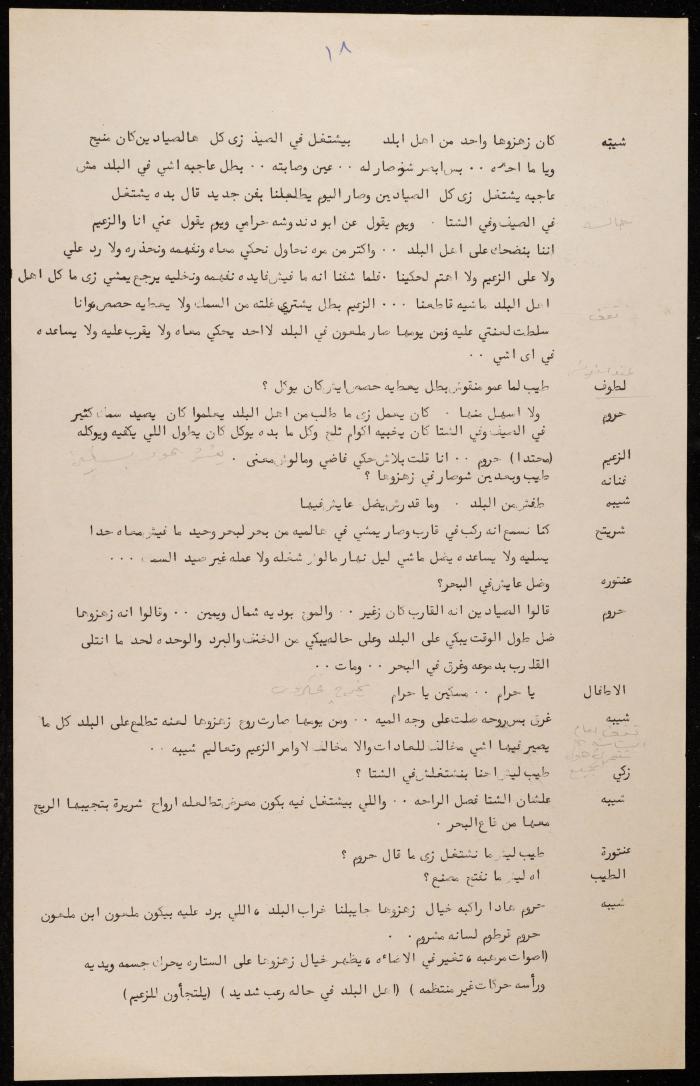 ١٨
شيبه كان زهزوها واحد من اهل ابلد بيشتغل في الصيد زى كل هالصيادين كان منيح
ويا ما احلاه ٠٠ بس ابصر شو صار له ٠٠ عين وصابته ٠٠ بطل عاجبه اشي في البلد مش
عاجبه يشتغل زى كل الصيادين وصار اليوم يطلعلنا بفن جديد قال بده يشتغل
في الصيف وفي الشتا ٠ ويوم يقول عن ابو دندوشه حرامي ويوم يقول عني انا والزعيم
اننا بنضحك على اهل البلد ٠٠ واكتر من مره نحاول نحكي معاه ونفهمه ونحذره ولا رد علي
ولا على الزعيم ولا اهتم لحكينا ٠ فلما شفنا انه ما فيش فايده نفهمه ونخليه يرجع يمشي زى ما كل اهل
اهل البلد ماشيه قاطعنا ٠٠٠ الزعيم بطل يشتري غلته من السمك ولا يعطيه حصص وانا
سلطت لعنتي عليه ومن يومها صار ملعون في البلد لا احد يحكي معاه ولا يقرب عليه ولا يساعده
في اى اشي ٠٠
لطوف طيب لما عمو منقوش بطل يعطيه حصص ايش كان يوكل ؟
حروم ولا اسهل منها ٠ كان يعمل زى ما طالب من اهل البلد يعلموا كان يصيد سمك كثير
في الصيف وفي الشتا كان يخبيه اكوام تلج وكل ما بده يوكل كان يطول اللي يكفيه ويوكله
الزعيم (محتدا) حروم ٠٠ انا قلت بلاش حكي فاضي ومالوش معنى ٠
فنانه طيب وبعدين شو صار في زهزوها ؟
شيبه طفش من البلد ٠ وما قدرش يضل عايش فيها
شريتح كنا نسمع انه ركب في قارب وصار يمشي في هالميه من بحر لبحر وحيد ما فيش معاه حدا
يسليه ولا يساعده يضل ماشي ليل نهار مالوش شغله ولا عمله غير صيد السمك ٠٠٠
عنتوره وضل عايش في البحر؟
حروم قالوا الصيادين انه القارب كان زغير ٠٠ والموج يوديه شمال ويمين ٠٠ وقالوا انه زهزوها
ضل طول الوقت يبكي على البلد وعلى حاله يبكي من الخنف والبرد والوحده لحد ما انتلى
القلرب بدموعه وغرق في البحر ٠٠ ومات ٠٠
الاطفال يا حرام ٠٠ مسكين يا حرام
شيبه غرق بس روحه ضلت على وجه الميه ٠٠ ومن يومها صارت روح زهزوها لعنه تطلع على البلد كل ما
يصير فيها اشي مخالف للعادات والا مخالف لاوامر الزعيم وتعاليم شيبه ٠٠
زكي طيب ليش احنا بنشتغلش في الشتا ؟
شيبه علشان الشتا فصل الراحه ٠٠ واللي بيشتغل فيه بكون معرض تطلعله ارواح شريرة بتجيبها الريح
معها من قاع البحر ٠
عنتورة طيب ليش ما نشتغل زى ما قال حروم ؟
الطيب اه ليش ما نفتح مصنع ؟
شيبه حروم هادا راكبه خيال زهزوها جايبلنا خراب البلد ، اللي برد عليه بيكون ملعون ابن ملعون
حروم قرطوم لسانه مشروم ٠ ٠
(اصوات مرعبه ، تغير في الاضاءه ، يظهر خيال زهزوها على الستاره يحرك جسمه ويديه
ورأسه حركات غير منتظمه ) (اهل البلد في حاله رعب شديد ) (يلتجأون للزعيم)